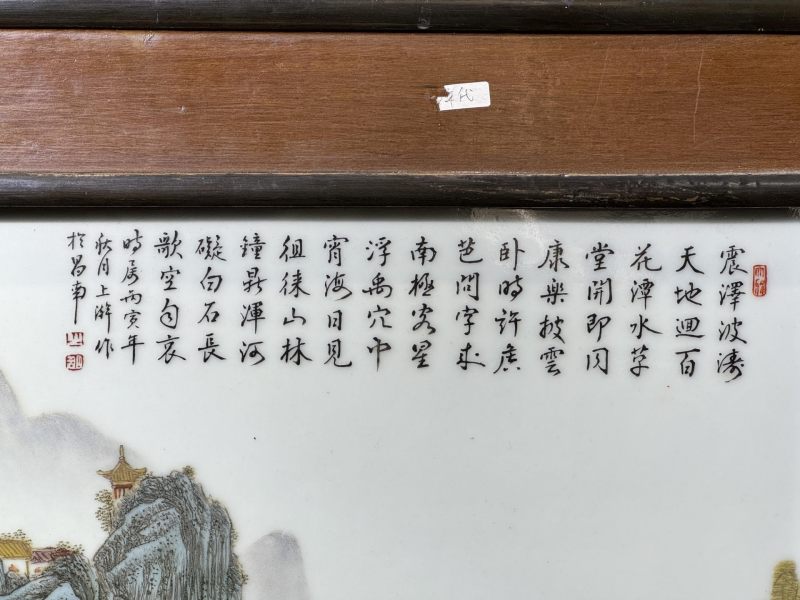 年代
震澤波濤
天地迴百
花潭水草
堂開即同
康樂披雲
卧時許侯
芭問字來
南極客星
浮禹穴中
宵海日見
徂徠山林
鐘鼎渾河
礙白石長
歌空自哀
時屬丙寅年
秋月上澣作
於昌南